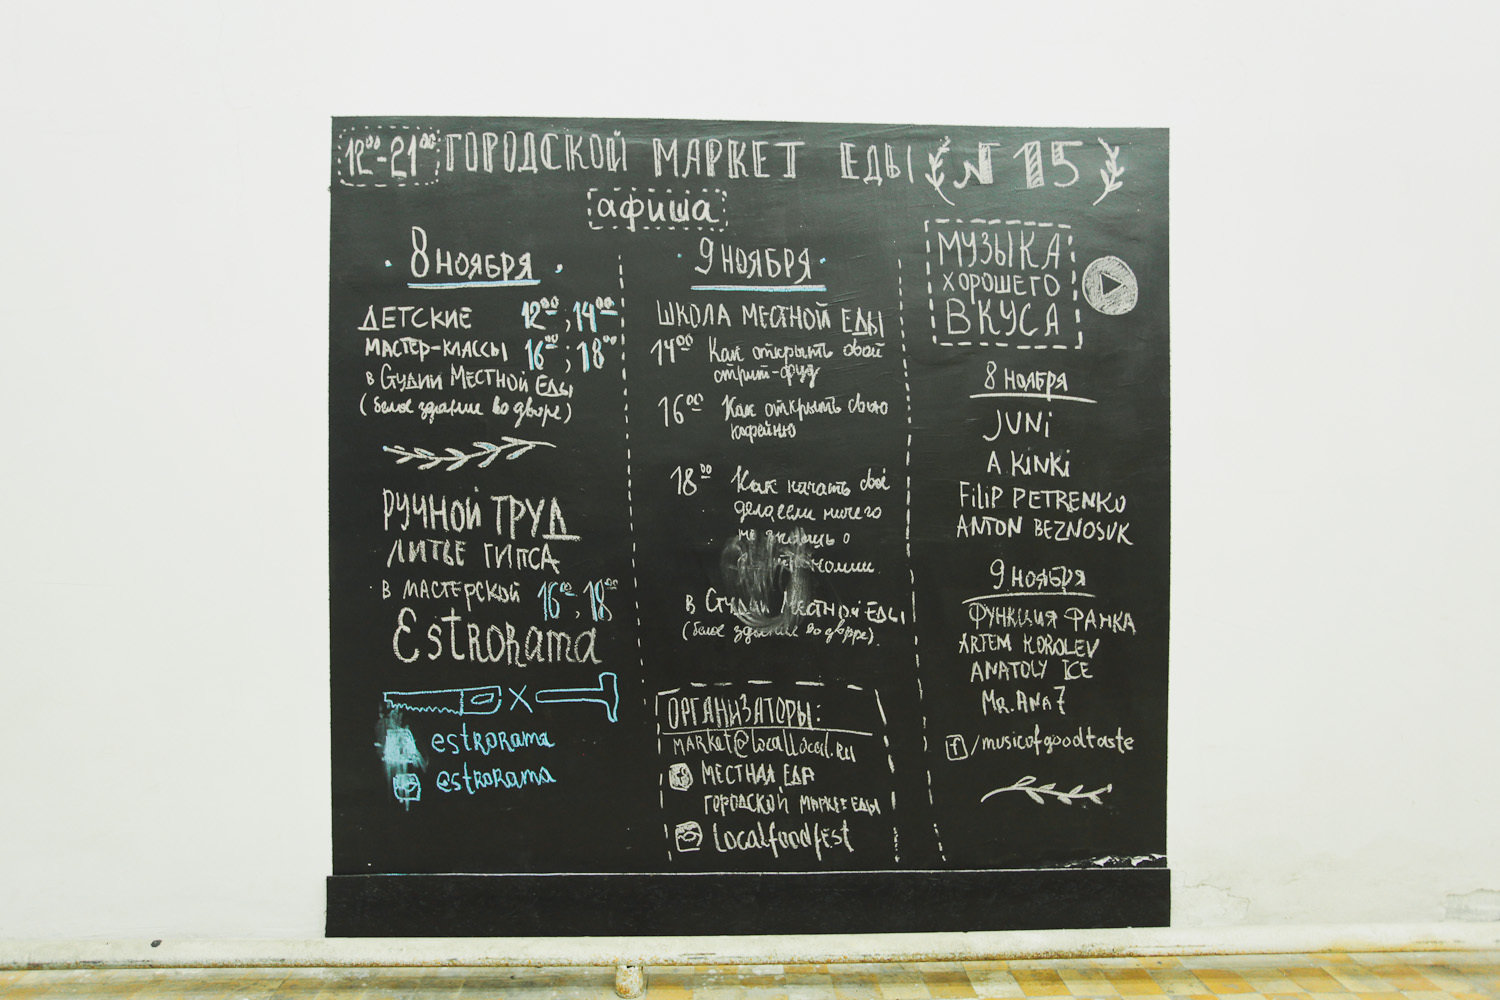 12⁰⁰-21⁰⁰ ГОРОДСКОЙ МАРКЕТ ЕДЫ N 15
афиша
8 НОЯБРЯ
ДЕТСКИЕ 12⁰⁰; 14⁰⁰
МАСТЕР-КЛАССЫ 16⁰⁰; 18⁰⁰
в Студии Местной Еды
(белое здание во дворе)
РУЧНОЙ ТРУД
ЛИТЬЕ ГИПСА
В МАСТЕРСКОЙ 16⁰⁰, 18⁰⁰
Estrorama
estrorama
@estrorama
9 НОЯБРЯ
ШКОЛА МЕСТНОЙ ЕДЫ
14⁰⁰ Как открыть свой
стрит-фуд
16⁰⁰ Как открыть свою
кофейню
18⁰⁰ Как начать своё
дело если ничего
не знаешь о
в Студии Местной Еды
(белое здание во дворе).
ОРГАНИЗАТОРЫ:
market@locallocal.ru
МЕСТНАЯ ЕДА
ГОРОДСКОЙ МАРКЕТ ЕДЫ
localfoodfest
МУЗЫКА
ХОРОШЕГО
ВКУСА
8 НОЯБРЯ
JUNi
A KiNKi
FiliP PETRENKO
ANTON BEZNOSUK
9 НОЯБРЯ
ФУНКЦИЯ ФАНКА
ARTEM KOROLEV
ANATOLY ICE
MR. ANA7
f /musicofgoodtaste